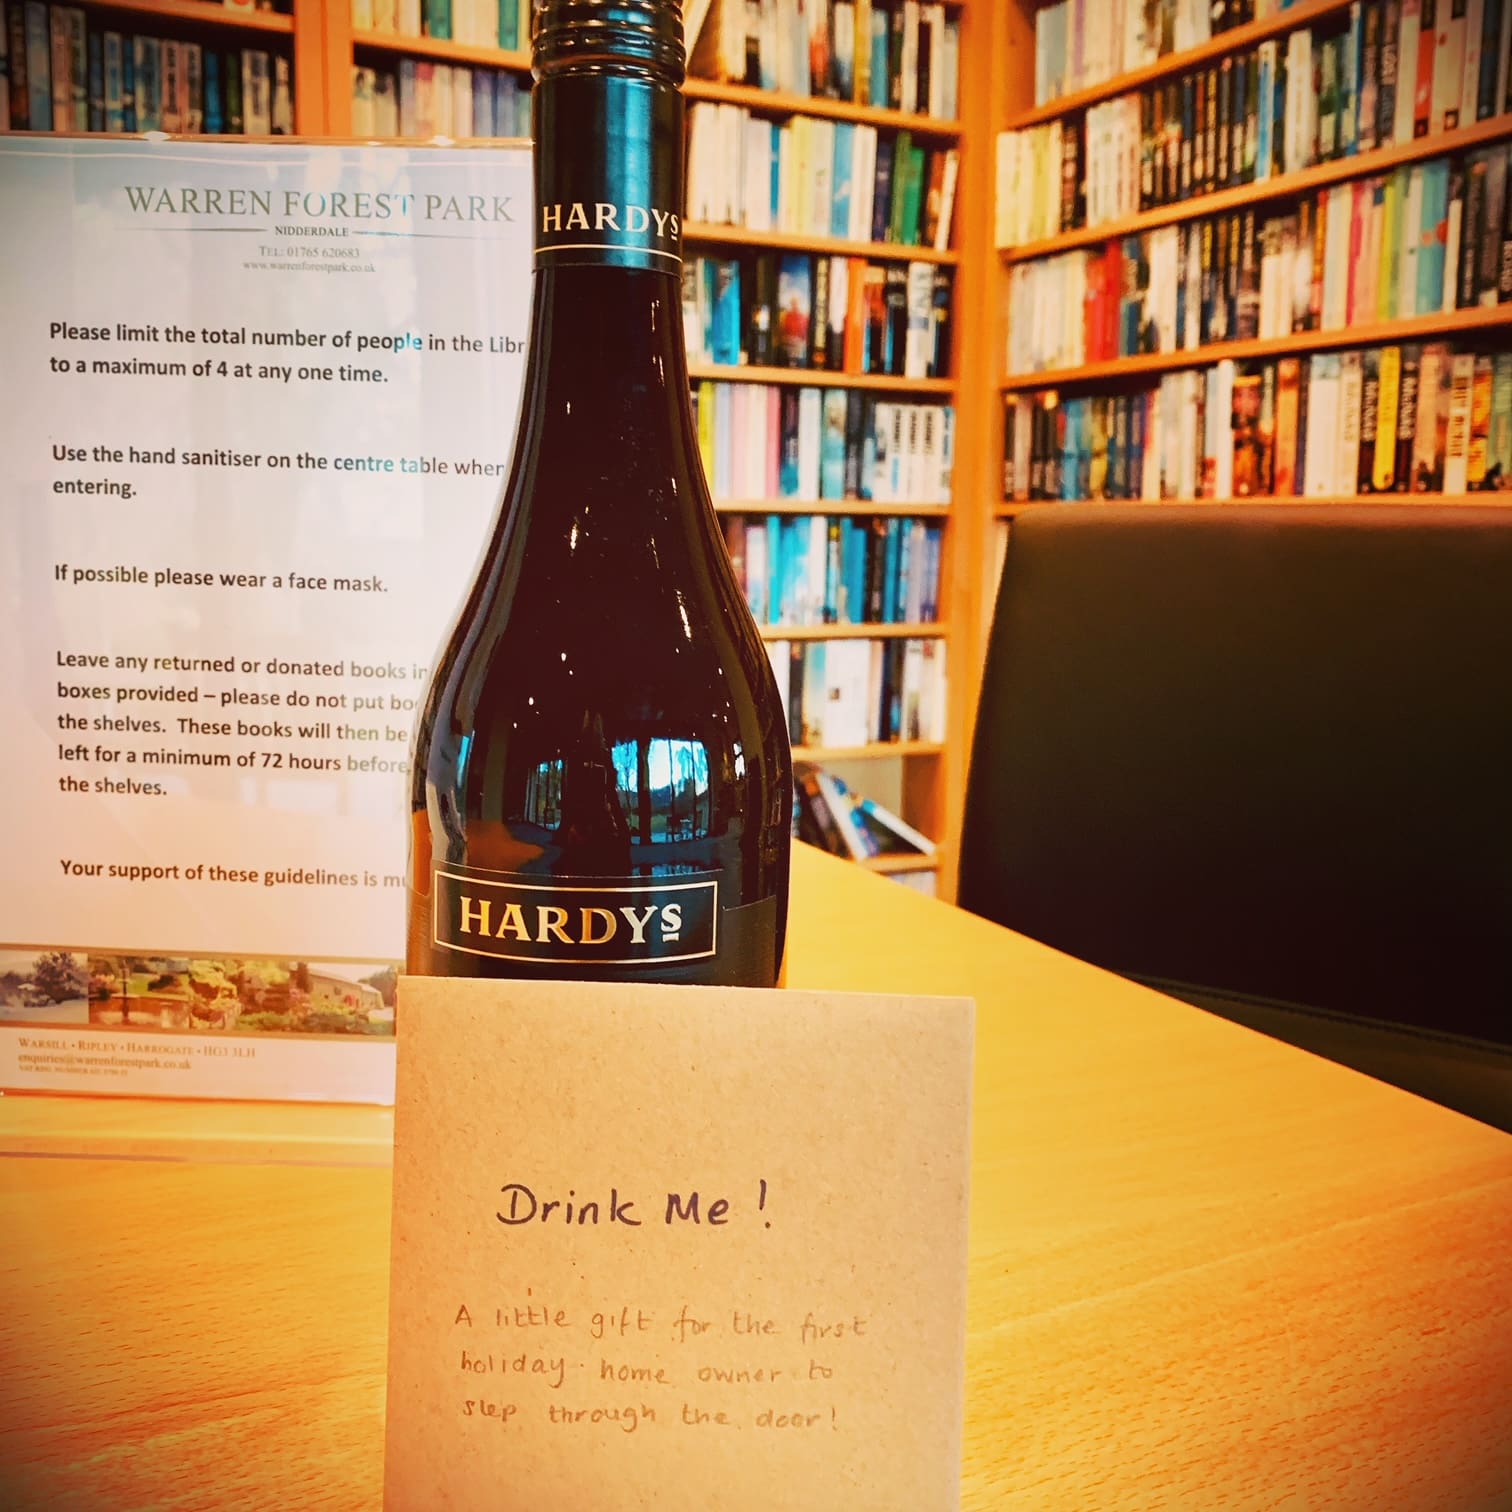 WARREN FOREST PARK
NIDDERDALE
TEL: 01765 620683
www.warrenforestpark.co.uk
Please limit the total number of people in the Libr
to a maximum of 4 at any one time.
Use the hand sanitiser on the centre table when
entering.
If possible please wear a face mask.
Leave any returned or donated books in
boxes provided – please do not put bo
the shelves. These books will then be
left for a minimum of 72 hours before
the shelves.
Your support of these guidelines is mu
WARSILL • RIPLEY • HARROGATE • HG3 3LH
enquiries@warrenforestpark.co.uk
HARDYS
HARDYS
Drink Me!
A little gift for the first
holiday home owner to
step through the door!